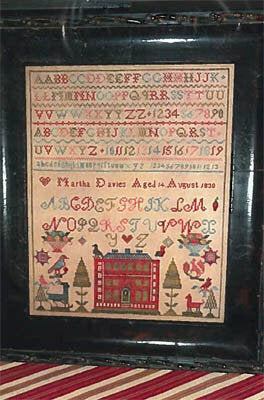 AABBCCDDEEFFGGHHIJJK
LLMMNNOOPPQQRRSSTTUU
VVWWXXYYZZ 1234567890
ABCDEFGHIJKLMNOPQRST
UVWXYZ 10 11 12 13 14 15 16 17 18 19
Martha Davies Aged 14 August 1830
ABCDEFGHIKLM
NOPQRSTUVWX
YZ